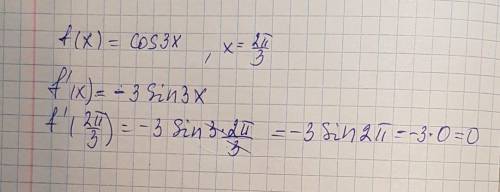 f(x) = cos3x , x = 2π/3
f'(x) = -3 sin3x
f'(2π/3) = -3 sin 3·2π/3 = -3 sin 2π = -3·0 = 0